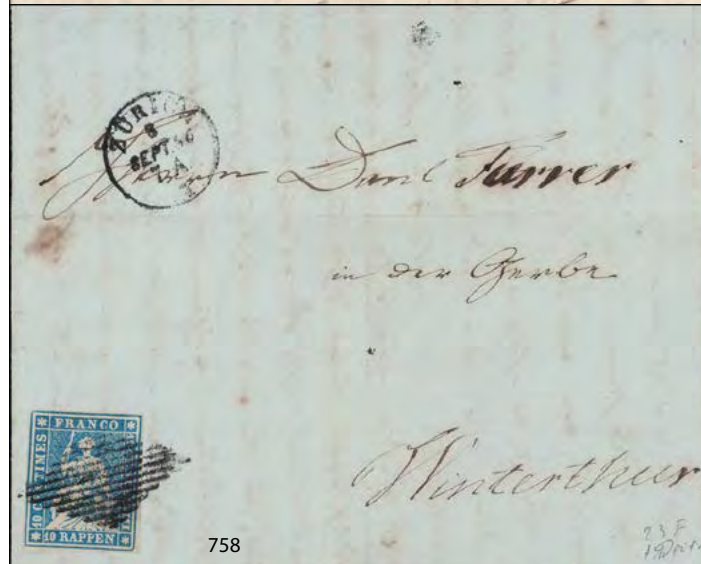 ZÜRICH
6
SEPT. 56
Herrn Danl Furrer
in der Gerbe
Winterthur
FRANCO
10 RAPPEN
758
23 F